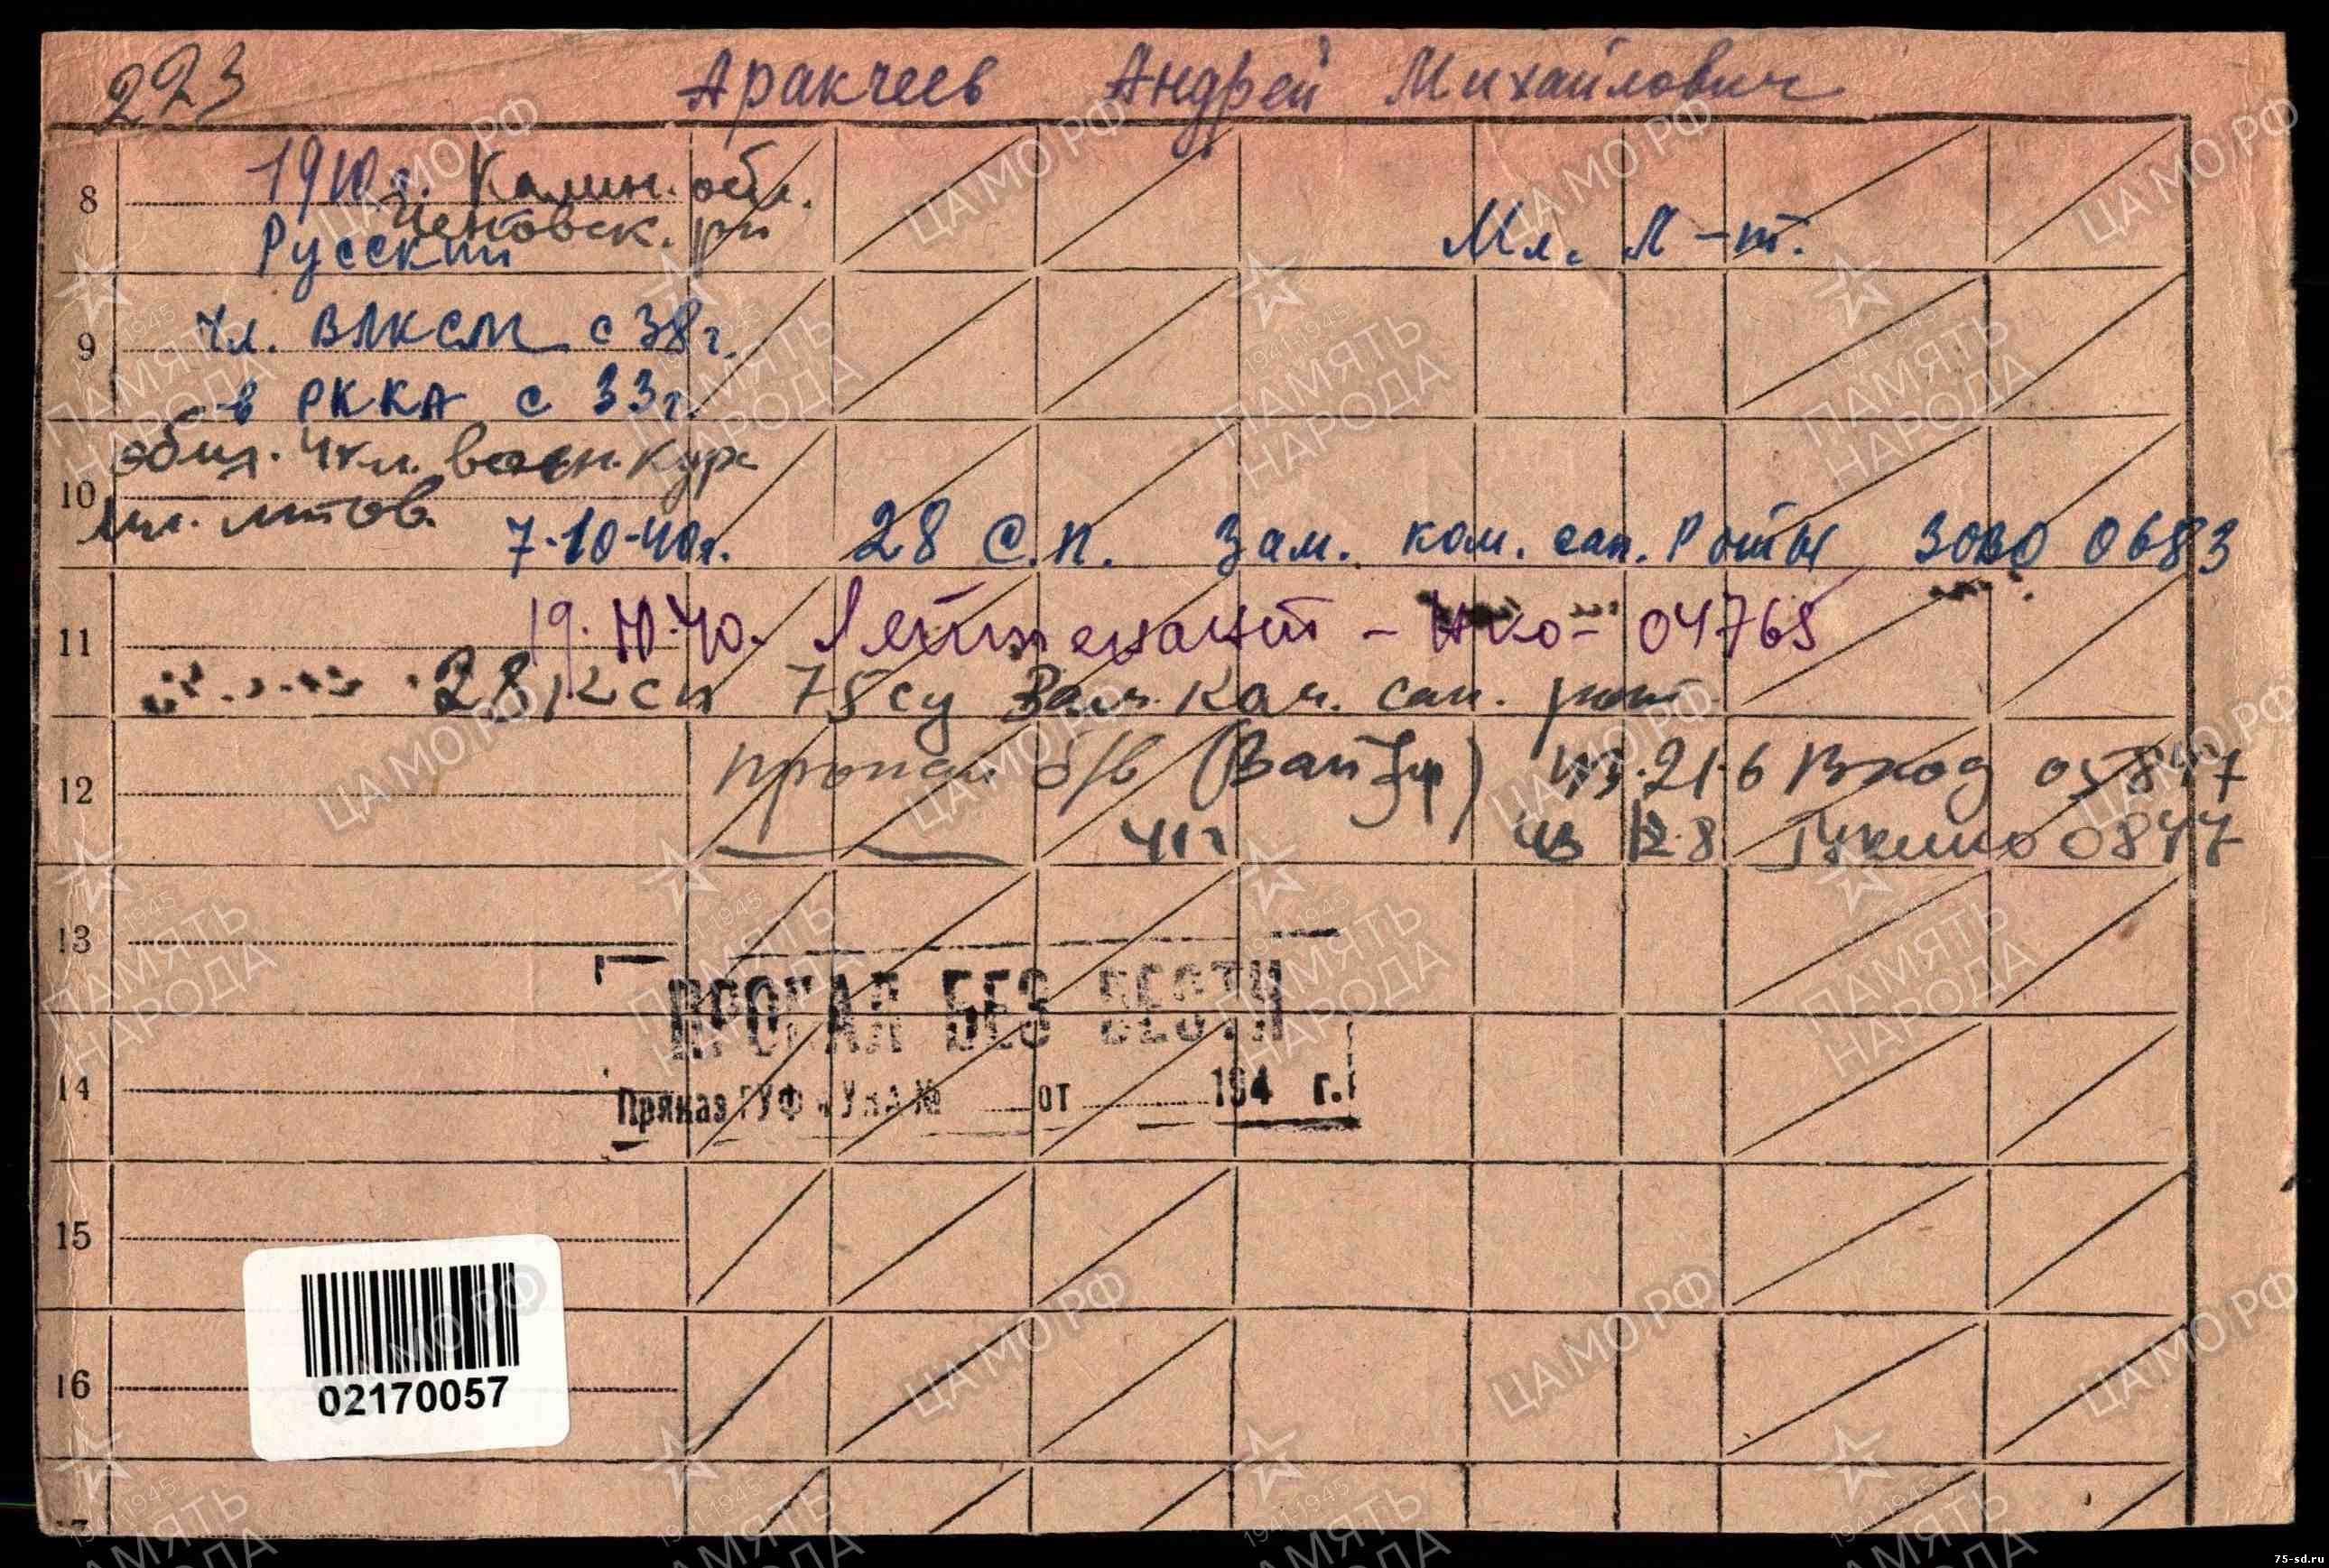 223 Аракчеев Андрей Михайлович
8 1910 г. Калин. обл.
р-н
Русский Мл. Л-т.
9 чл. ВЛКСМ с 38 г.
в РККА с 33 г.
10 мл. л-тов.
7-10-40 г. 28 С.П. Зам. ком. сап. Роты ЗОВО 0683
11 19.10.40. Лейтенант - НКО - 04765
28 к сп 75 сд Зам. ком. сап. рот
12 пропал б/в 21.6 Вход 05847
41 г 12.8
13
ПРОПАЛ БЕЗ ВЕСТИ
14 Приказ ГУФ и УКА № от 194 г.
15
16
02170057
ЦАМО.РФ
1941-1945
ПАМЯТЬ
НАРОДА
75-sd.ru